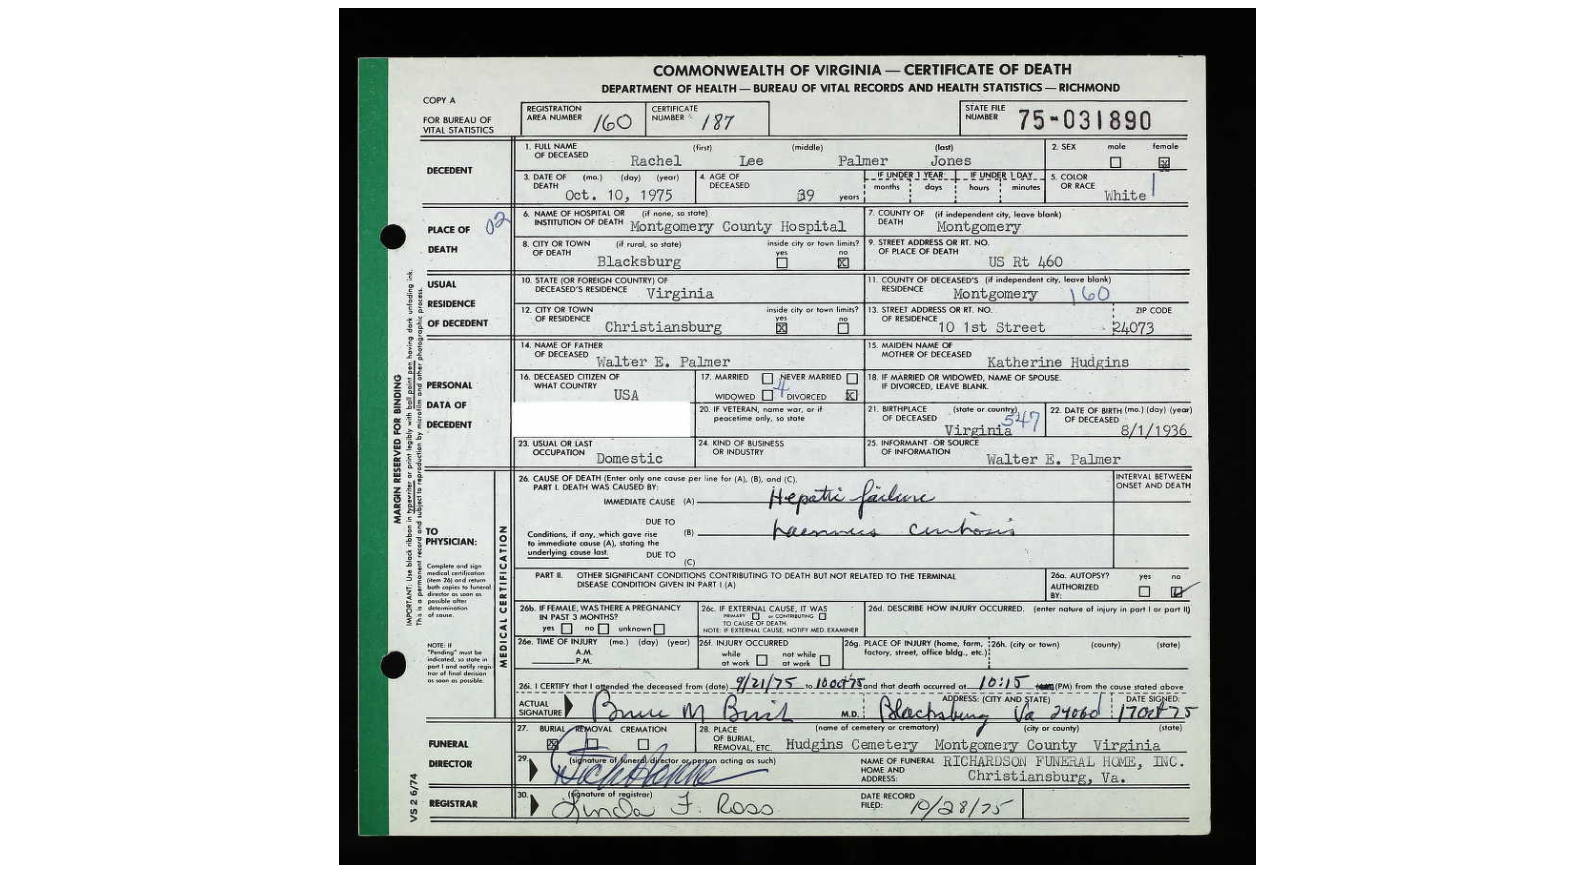 COMMONWEALTH OF VIRGINIA — CERTIFICATE OF DEATH
DEPARTMENT OF HEALTH — BUREAU OF VITAL RECORDS AND HEALTH STATISTICS — RICHMOND
COPY A
FOR BUREAU OF VITAL STATISTICS
REGISTRATION AREA NUMBER 160
CERTIFICATE NUMBER 187
STATE FILE NUMBER 75-031890
DECEDENT
1. FULL NAME OF DECEASED (first) (middle) (last)
Rachel Lee Palmer Jones
2. SEX male female X
3. DATE OF DEATH (mo.) (day) (year)
Oct. 10, 1975
4. AGE OF DECEASED 39 years
IF UNDER 1 YEAR months days
IF UNDER 1 DAY hours minutes
5. COLOR OR RACE White 1
PLACE OF DEATH
02
6. NAME OF HOSPITAL OR INSTITUTION OF DEATH (if none, so state)
Montgomery County Hospital
7. COUNTY OF DEATH (if independent city, leave blank)
Montgomery
8. CITY OR TOWN OF DEATH (if rural, so state) inside city or town limits? yes no X
Blacksburg
9. STREET ADDRESS OR RT. NO. OF PLACE OF DEATH
US Rt 460
USUAL RESIDENCE OF DECEDENT
10. STATE (OR FOREIGN COUNTRY) OF DECEASED'S RESIDENCE Virginia
11. COUNTY OF DECEASED'S RESIDENCE (if independent city, leave blank)
Montgomery 160
12. CITY OR TOWN OF RESIDENCE inside city or town limits? yes X no
Christiansburg
13. STREET ADDRESS OR RT. NO. OF RESIDENCE ZIP CODE
10 1st Street 24073
PERSONAL DATA OF DECEDENT
14. NAME OF FATHER OF DECEASED
Walter E. Palmer
15. MAIDEN NAME OF MOTHER OF DECEASED
Katherine Hudgins
16. DECEASED CITIZEN OF WHAT COUNTRY
USA
17. MARRIED NEVER MARRIED
WIDOWED 4 DIVORCED X
18. IF MARRIED OR WIDOWED, NAME OF SPOUSE. IF DIVORCED, LEAVE BLANK.
20. IF VETERAN, name war, or if peacetime only, so state
21. BIRTHPLACE OF DECEASED (state or country)
Virginia 547
22. DATE OF BIRTH OF DECEASED (mo.) (day) (year)
8/1/1936
23. USUAL OR LAST OCCUPATION Domestic
24. KIND OF BUSINESS OR INDUSTRY
25. INFORMANT OR SOURCE OF INFORMATION
Walter E. Palmer
MARGIN RESERVED FOR BINDING
IMPORTANT: Use black ribbon in typewriter or print legibly with ball point pen having dark unfading ink.
This is a permanent record and subject to reproduction by microfilm and other photographic process.
VS 2 6/74
TO PHYSICIAN:
Complete and sign medical certification (item 26) and return both copies to funeral director as soon as possible after determination of cause.
NOTE: If "Pending" must be indicated, so state in part I and notify registrar of final decision as soon as possible.
MEDICAL CERTIFICATION
26. CAUSE OF DEATH (Enter only one cause per line for (A), (B), and (C).
PART I. DEATH WAS CAUSED BY:
INTERVAL BETWEEN ONSET AND DEATH
IMMEDIATE CAUSE (A) Hepatic failure
DUE TO
(B) Laennecs cirrhosis
Conditions, if any, which gave rise to immediate cause (A), stating the underlying cause last.
DUE TO
(C)
PART II. OTHER SIGNIFICANT CONDITIONS CONTRIBUTING TO DEATH BUT NOT RELATED TO THE TERMINAL DISEASE CONDITION GIVEN IN PART I (A)
26a. AUTOPSY? yes no
AUTHORIZED BY:
26b. IF FEMALE, WAS THERE A PREGNANCY IN PAST 3 MONTHS?
yes no unknown
26c. IF EXTERNAL CAUSE, IT WAS
PRIMARY or CONTRIBUTING
TO CAUSE OF DEATH.
NOTE: IF EXTERNAL CAUSE, NOTIFY MED. EXAMINER
26d. DESCRIBE HOW INJURY OCCURRED. (enter nature of injury in part I or part II)
26e. TIME OF INJURY (mo.) (day) (year)
A.M.
P.M.
26f. INJURY OCCURRED
while at work not while at work
26g. PLACE OF INJURY (home, farm, factory, street, office bldg., etc.)
26h. (city or town) (county) (state)
26i. I CERTIFY that I attended the deceased from (date) 9/21/75 to 10 Oct 75 and that death occurred at 10:15 (PM) from the cause stated above
ACTUAL SIGNATURE Bruce M M.D.
ADDRESS: (CITY AND STATE) Blacksburg Va 24060
DATE SIGNED: 17 Oct 75
FUNERAL DIRECTOR
27. BURIAL REMOVAL CREMATION
X
28. PLACE OF BURIAL, REMOVAL, ETC. (name of cemetery or crematory) (city or county) (state)
Hudgins Cemetery Montgomery County Virginia
29. (signature of funeral director or person acting as such)
NAME OF FUNERAL HOME AND ADDRESS: RICHARDSON FUNERAL HOME, INC.
Christiansburg, Va.
REGISTRAR
30. (signature of registrar)
Linda F. Ross
DATE RECORD FILED: 10/28/75